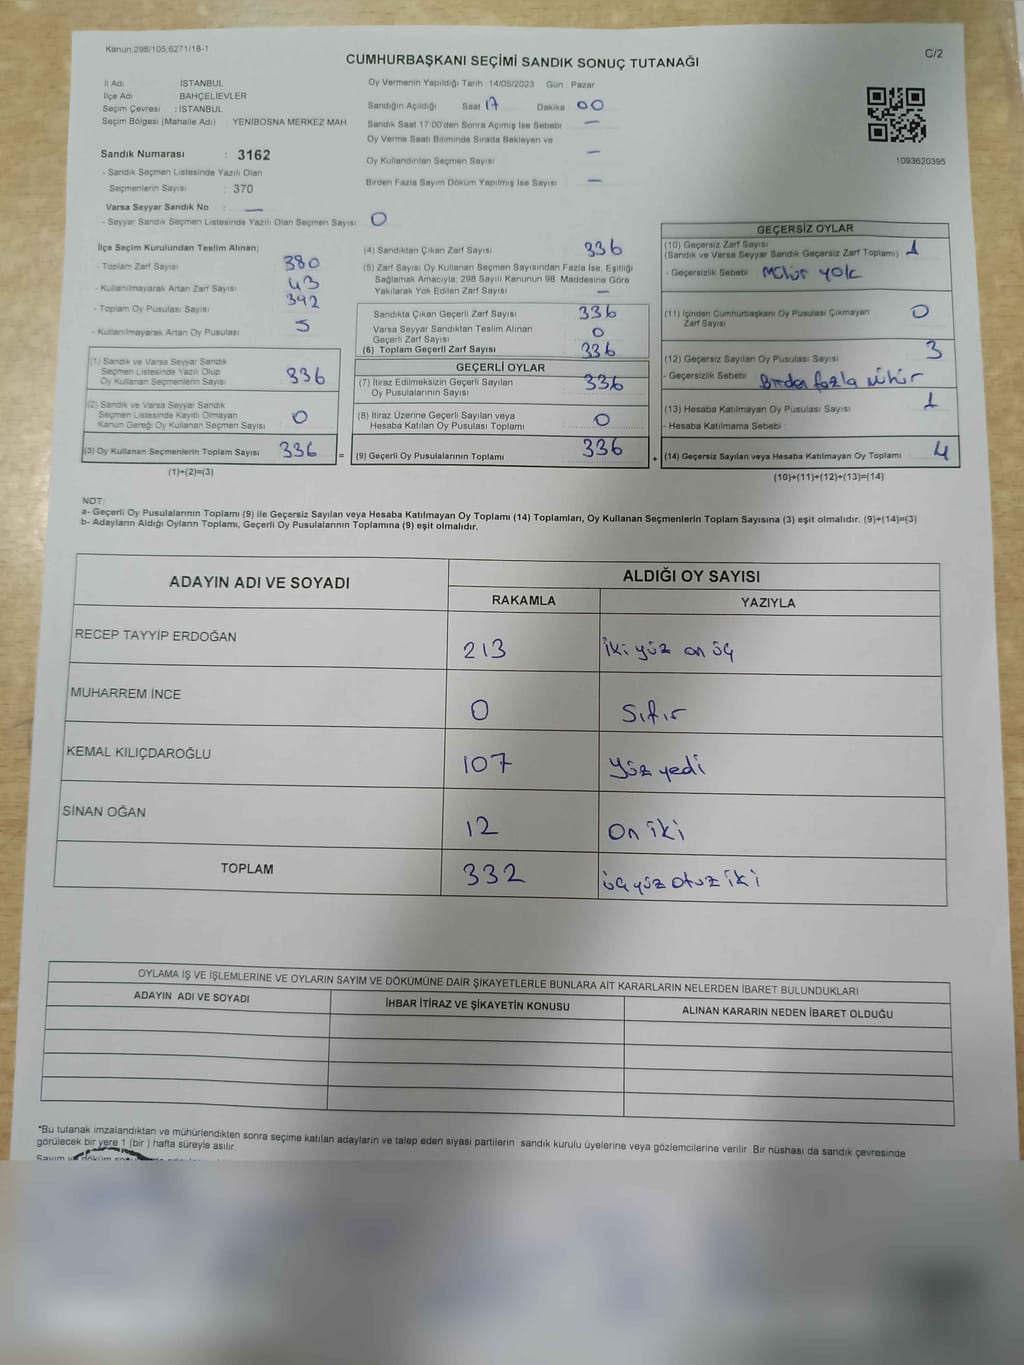 Kanun:298/105,6271/18-1
C/2
CUMHURBAŞKANI SEÇİMİ SANDIK SONUÇ TUTANAĞI
İl Adı : İSTANBUL
İlçe Adı : BAHÇELİEVLER
Seçim Çevresi : İSTANBUL
Seçim Bölgesi (Mahalle Adı) : YENİBOSNA MERKEZ MAH.
Oy Vermenin Yapıldığı Tarih :14/05/2023 Gün : Pazar
Sandığın Açıldığı Saat 17 Dakika 00
Sandık Saat 17:00'den Sonra Açılmış İse Sebebi —
Oy Verme Saati Bitiminde Sırada Bekleyen ve
Oy Kullandırılan Seçmen Sayısı —
Birden Fazla Sayım Döküm Yapılmış İse Sayısı —
1093620395
Sandık Numarası : 3162
- Sandık Seçmen Listesinde Yazılı Olan
Seçmenlerin Sayısı : 370
Varsa Seyyar Sandık No : —
- Seyyar Sandık Seçmen Listesinde Yazılı Olan Seçmen Sayısı: 0
İlçe Seçim Kurulundan Teslim Alınan;
- Toplam Zarf Sayısı 380
- Kullanılmayarak Artan Zarf Sayısı 43
- Toplam Oy Pusulası Sayısı 342
- Kullanılmayarak Artan Oy Pusulası 5
(1) Sandık ve Varsa Seyyar Sandık
Seçmen Listesinde Yazılı Olup
Oy Kullanan Seçmenlerin Sayısı 336
(2) Sandık ve Varsa Seyyar Sandık
Seçmen Listesinde Kayıtlı Olmayan
Kanun Gereği Oy Kullanan Seçmen Sayısı 0
(3) Oy Kullanan Seçmenlerin Toplam Sayısı 336
(1)+(2)=(3)
=
(4) Sandıktan Çıkan Zarf Sayısı 336
(5) Zarf Sayısı Oy Kullanan Seçmen Sayısından Fazla İse, Eşitliği
Sağlamak Amacıyla; 298 Sayılı Kanunun 98. Maddesine Göre
Yakılarak Yok Edilen Zarf Sayısı —
Sandıkta Çıkan Geçerli Zarf Sayısı 336
Varsa Seyyar Sandıktan Teslim Alınan
Geçerli Zarf Sayısı 0
(6) Toplam Geçerli Zarf Sayısı 336
GEÇERLİ OYLAR
(7) İtiraz Edilmeksizin Geçerli Sayılan
Oy Pusulalarının Sayısı 336
(8) İtiraz Üzerine Geçerli Sayılan veya
Hesaba Katılan Oy Pusulası Toplamı 0
(9) Geçerli Oy Pusulalarının Toplamı 336
+
GEÇERSİZ OYLAR
(10) Geçersiz Zarf Sayısı
(Sandık ve Varsa Seyyar Sandık Geçersiz Zarf Toplamı) 1
- Geçersizlik Sebebi : Mühür yok
(11) İçinden Cumhurbaşkanı Oy Pusulası Çıkmayan
Zarf Sayısı 0
(12) Geçersiz Sayılan Oy Pusulası Sayısı 3
- Geçersizlik Sebebi : Birden fazla mühür
(13) Hesaba Katılmayan Oy Pusulası Sayısı 1
- Hesaba Katılmama Sebebi :
(14) Geçersiz Sayılan veya Hesaba Katılmayan Oy Toplamı 4
(10)+(11)+(12)+(13)=(14)
NOT:
a- Geçerli Oy Pusulalarının Toplamı (9) ile Geçersiz Sayılan veya Hesaba Katılmayan Oy Toplamı (14) Toplamları, Oy Kullanan Seçmenlerin Toplam Sayısına (3) eşit olmalıdır. (9)+(14)=(3)
b- Adayların Aldığı Oyların Toplamı, Geçerli Oy Pusulalarının Toplamına (9) eşit olmalıdır.
ADAYIN ADI VE SOYADI
ALDIĞI OY SAYISI
RAKAMLA YAZIYLA
RECEP TAYYİP ERDOĞAN 213 iki yüz on üç
MUHARREM İNCE 0 Sıfır
KEMAL KILIÇDAROĞLU 107 Yüz yedi
SİNAN OĞAN 12 On iki
TOPLAM 332 üç yüz otuz iki
OYLAMA İŞ VE İŞLEMLERİNE VE OYLARIN SAYIM VE DÖKÜMÜNE DAİR ŞİKAYETLERLE BUNLARA AİT KARARLARIN NELERDEN İBARET BULUNDUKLARI
ADAYIN ADI VE SOYADI İHBAR İTİRAZ VE ŞİKAYETİN KONUSU ALINAN KARARIN NEDEN İBARET OLDUĞU
*Bu tutanak imzalandıktan ve mühürlendikten sonra seçime katılan adayların ve talep eden siyasi partilerin sandık kurulu üyelerine veya gözlemcilerine verilir. Bir nüshası da sandık çevresinde
görülecek bir yere 1 (bir ) hafta süreyle asılır.
Sayım ve döküm